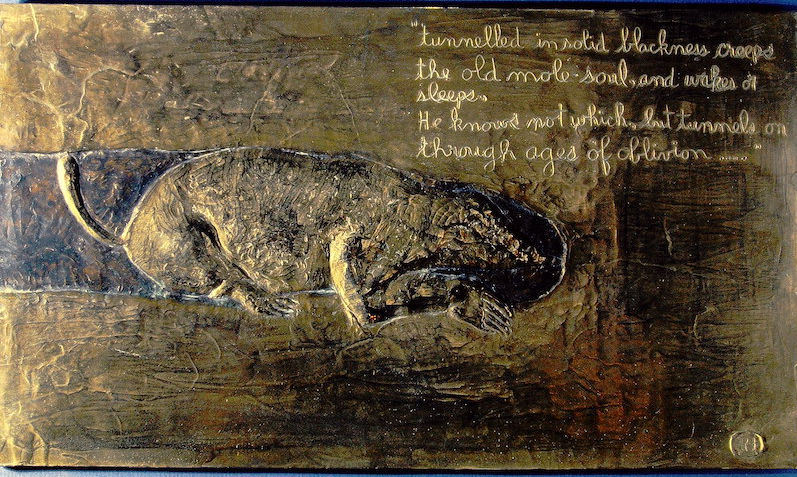 "tunnelled in solid blackness creeps
the old mole-soul, and wakes or
sleeps,
He knows not which, but tunnels on
through ages of oblivion ....."